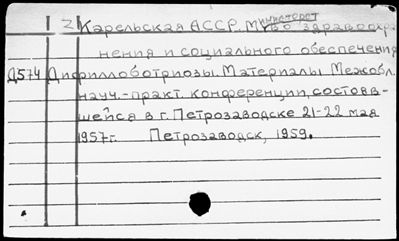 2 Карельская АССР. М-во здравоохра-
министерст
нения и социального обеспечения
Д574 Дифиллоботриозы. Материалы Межобл.
науч.-практ. конференции, состояв-
шейся в г. Петрозаводске 21-22 мая
1957г. Петрозаводск, 1959.